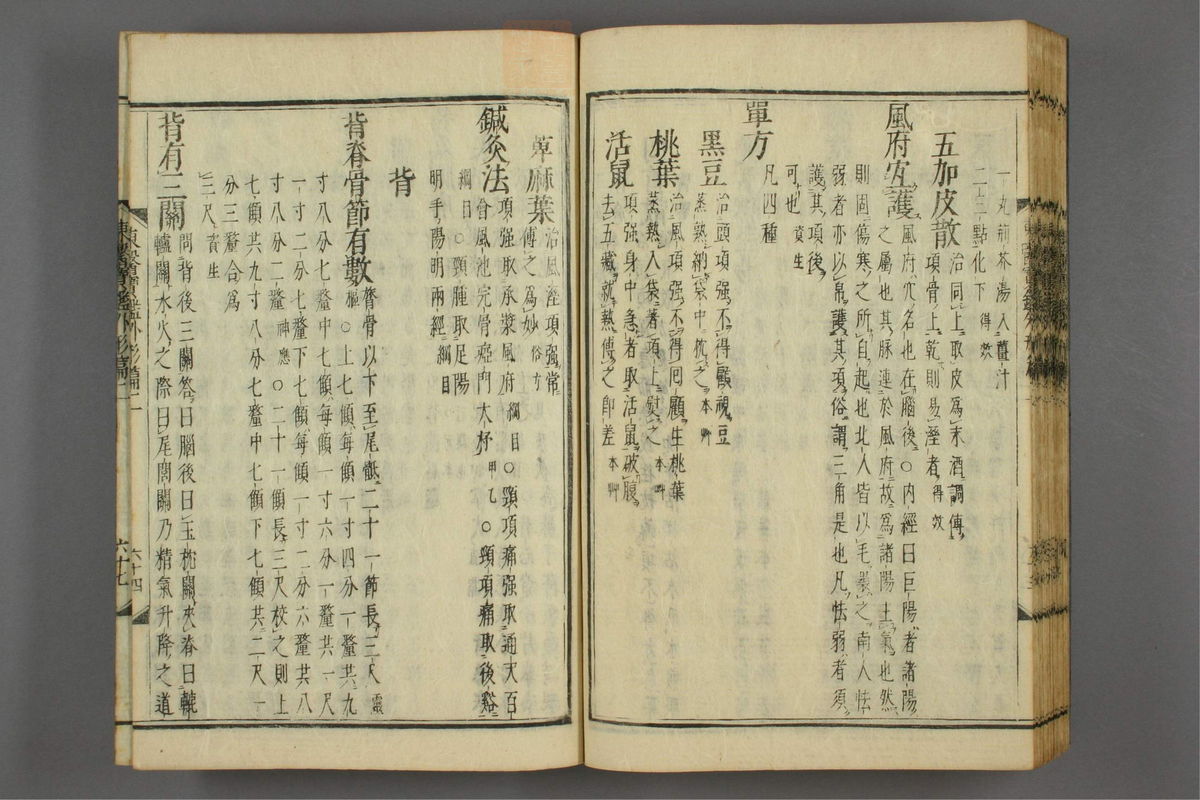 一丸煎茶湯入薑汁
二三點化下得效
五加皮散治同上取皮爲末酒調傅
項骨上乾則易溼者得效
風府宜護風府穴名也在腦後○內經曰巨陽者諸陽
之屬也其脉連於風府故爲諸陽主氣也然
則固傷寒之所自起也北人皆以毛裘之南人怯
弱者亦以帛護其項俗謂三角是也凡怯弱者須
護其項後
可也資生
單方
凡四種
黑豆治頭項强不得顧視豆
蒸熟納袋中枕之本艸
桃葉治風項强不得回顧生桃葉
蒸熟入袋著項上熨之本艸
活鼠項强身中急者取活鼠破腹
去五藏就熱傅之即差本艸
萆麻葉治風溼項强常
傅之爲妙俗方
鍼灸法項强取承漿風府綱目○頸項痛强取通天百
會風池完骨瘂門大杼甲乙○頸項痛取後谿
綱目○頸腫取足陽
明手陽明兩經綱目
背
背脊骨節有數膂骨以下至尾骶二十一節長三尺靈
樞○上七顀每顀一寸四分一釐共九
寸八分七釐中七顀每顀一寸六分一釐共一尺
一寸二分七釐下七顀每顀一寸二分六釐共八
寸八分二釐神應○二十一顀長三尺校之則上
七顀共九寸八分七釐中七顀下七顀共二尺一
分三釐合爲
三尺資生
背有三關問背後三關答曰腦後曰玉枕關夾脊曰轆
轤關水火之際曰尾閭關乃精氣升降之道
東醫寶鑑外形篇二
六十四
六十七